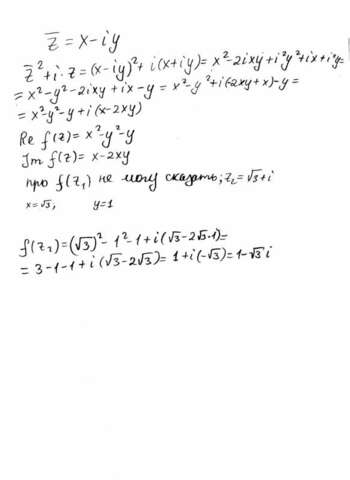 z̅ = x - iy
z̅² + i · z = (x - iy)² + i(x + iy) = x² - 2ixy + i²y² + ix + i²y =
= x² - y² - 2ixy + ix - y = x² - y² + i(-2xy + x) - y =
= x² - y² - y + i(x - 2xy)
Re f(z) = x² - y² - y
Im f(z) = x - 2xy
про f(z₁) не могу сказать; z₂ = √3 + i
x = √3, y = 1
f(z₂) = (√3)² - 1² - 1 + i(√3 - 2√3·1) =
= 3 - 1 - 1 + i(√3 - 2√3) = 1 + i(-√3) = 1 - √3 i